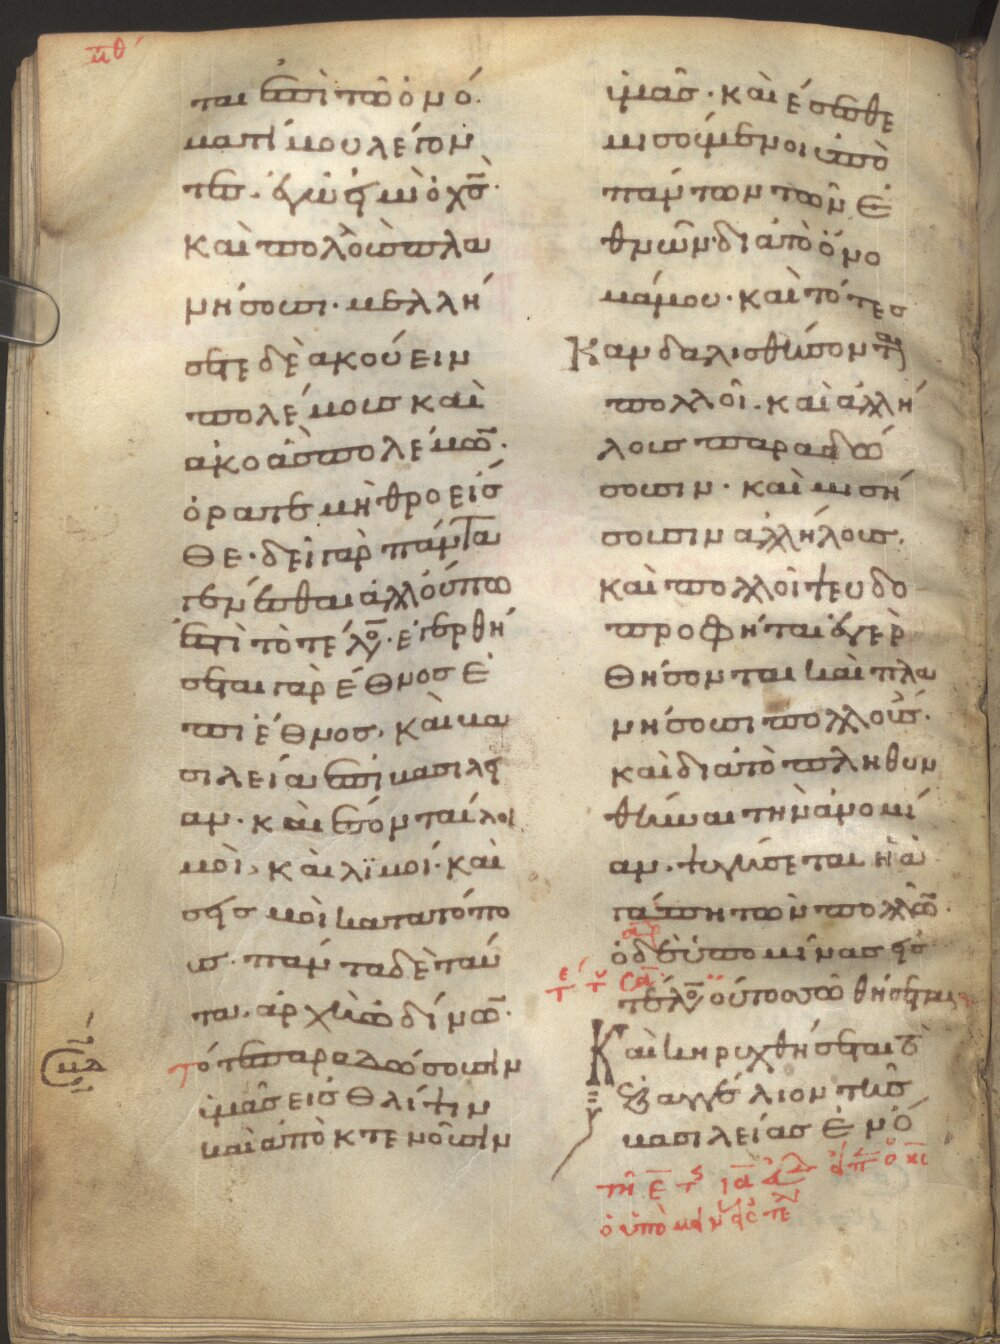 μθ
ται ἐπὶ τῶ ὀνό
ματί μου λέγον
τες· ἐγώ εἰμι ὁ χς̄·
καὶ πολλοὺς πλα
νήσουσι· μελλή
σετε δὲ ἀκούειν
πολέμους καὶ
ἀκοὰς πολέμων·
ὁρᾶτε μὴ θροεῖσ
θε· δεῖ γὰρ πάντα
γενέσθαι ἀλλ' οὔπω
ἐστὶ τὸ τέλος· ἐγερθή
σεται γὰρ ἔθνος ἐ
πὶ ἔθνος· καὶ βα
σιλεία ἐπὶ βασιλεί
αν· καὶ ἔσονται λοι
μοὶ· καὶ λϊμοί· καὶ
σεισμοὶ κατα τόπο
υς· πάντα δὲ ταῦ
τα· ἀρχὴ ὠδίνων·
τότε παραδώσουσιν
ὑμᾶς εἰς θλίψιν
καὶ ἀποκτενοῦσιν
ὑμᾶς· καὶ ἔσεσθε
μισούμενοι ὑπὸ
πάντων τῶν ἐ
θνῶν· διὰ τὸ ὄνο
μά μου· καὶ τότε σ
Καν δαλισθήσονται
πολλοὶ· καὶ ἀλλή
λους παραδώ
σουσιν· καὶ μισή
σουσιν ἀλλήλους·
καὶ πολλοὶ ψευδο
προφήται ἐγερ
θήσονται καὶ πλα
νήσουσι πολλούς·
καὶ διὰ τὸ πληθυν
θῆναι τὴν ἀνομί
αν· ψυγήσεται ἡ ἀ
γάπη τῶν πολλῶν·
ὁ δὲ ὑπομίνας εἰς
τέλος οὗτος σωθήσεται
Καὶ κηρυχθήσεται τὸ
εὐαγγέλιον τῆς
βασιλείας ἐν ὅ